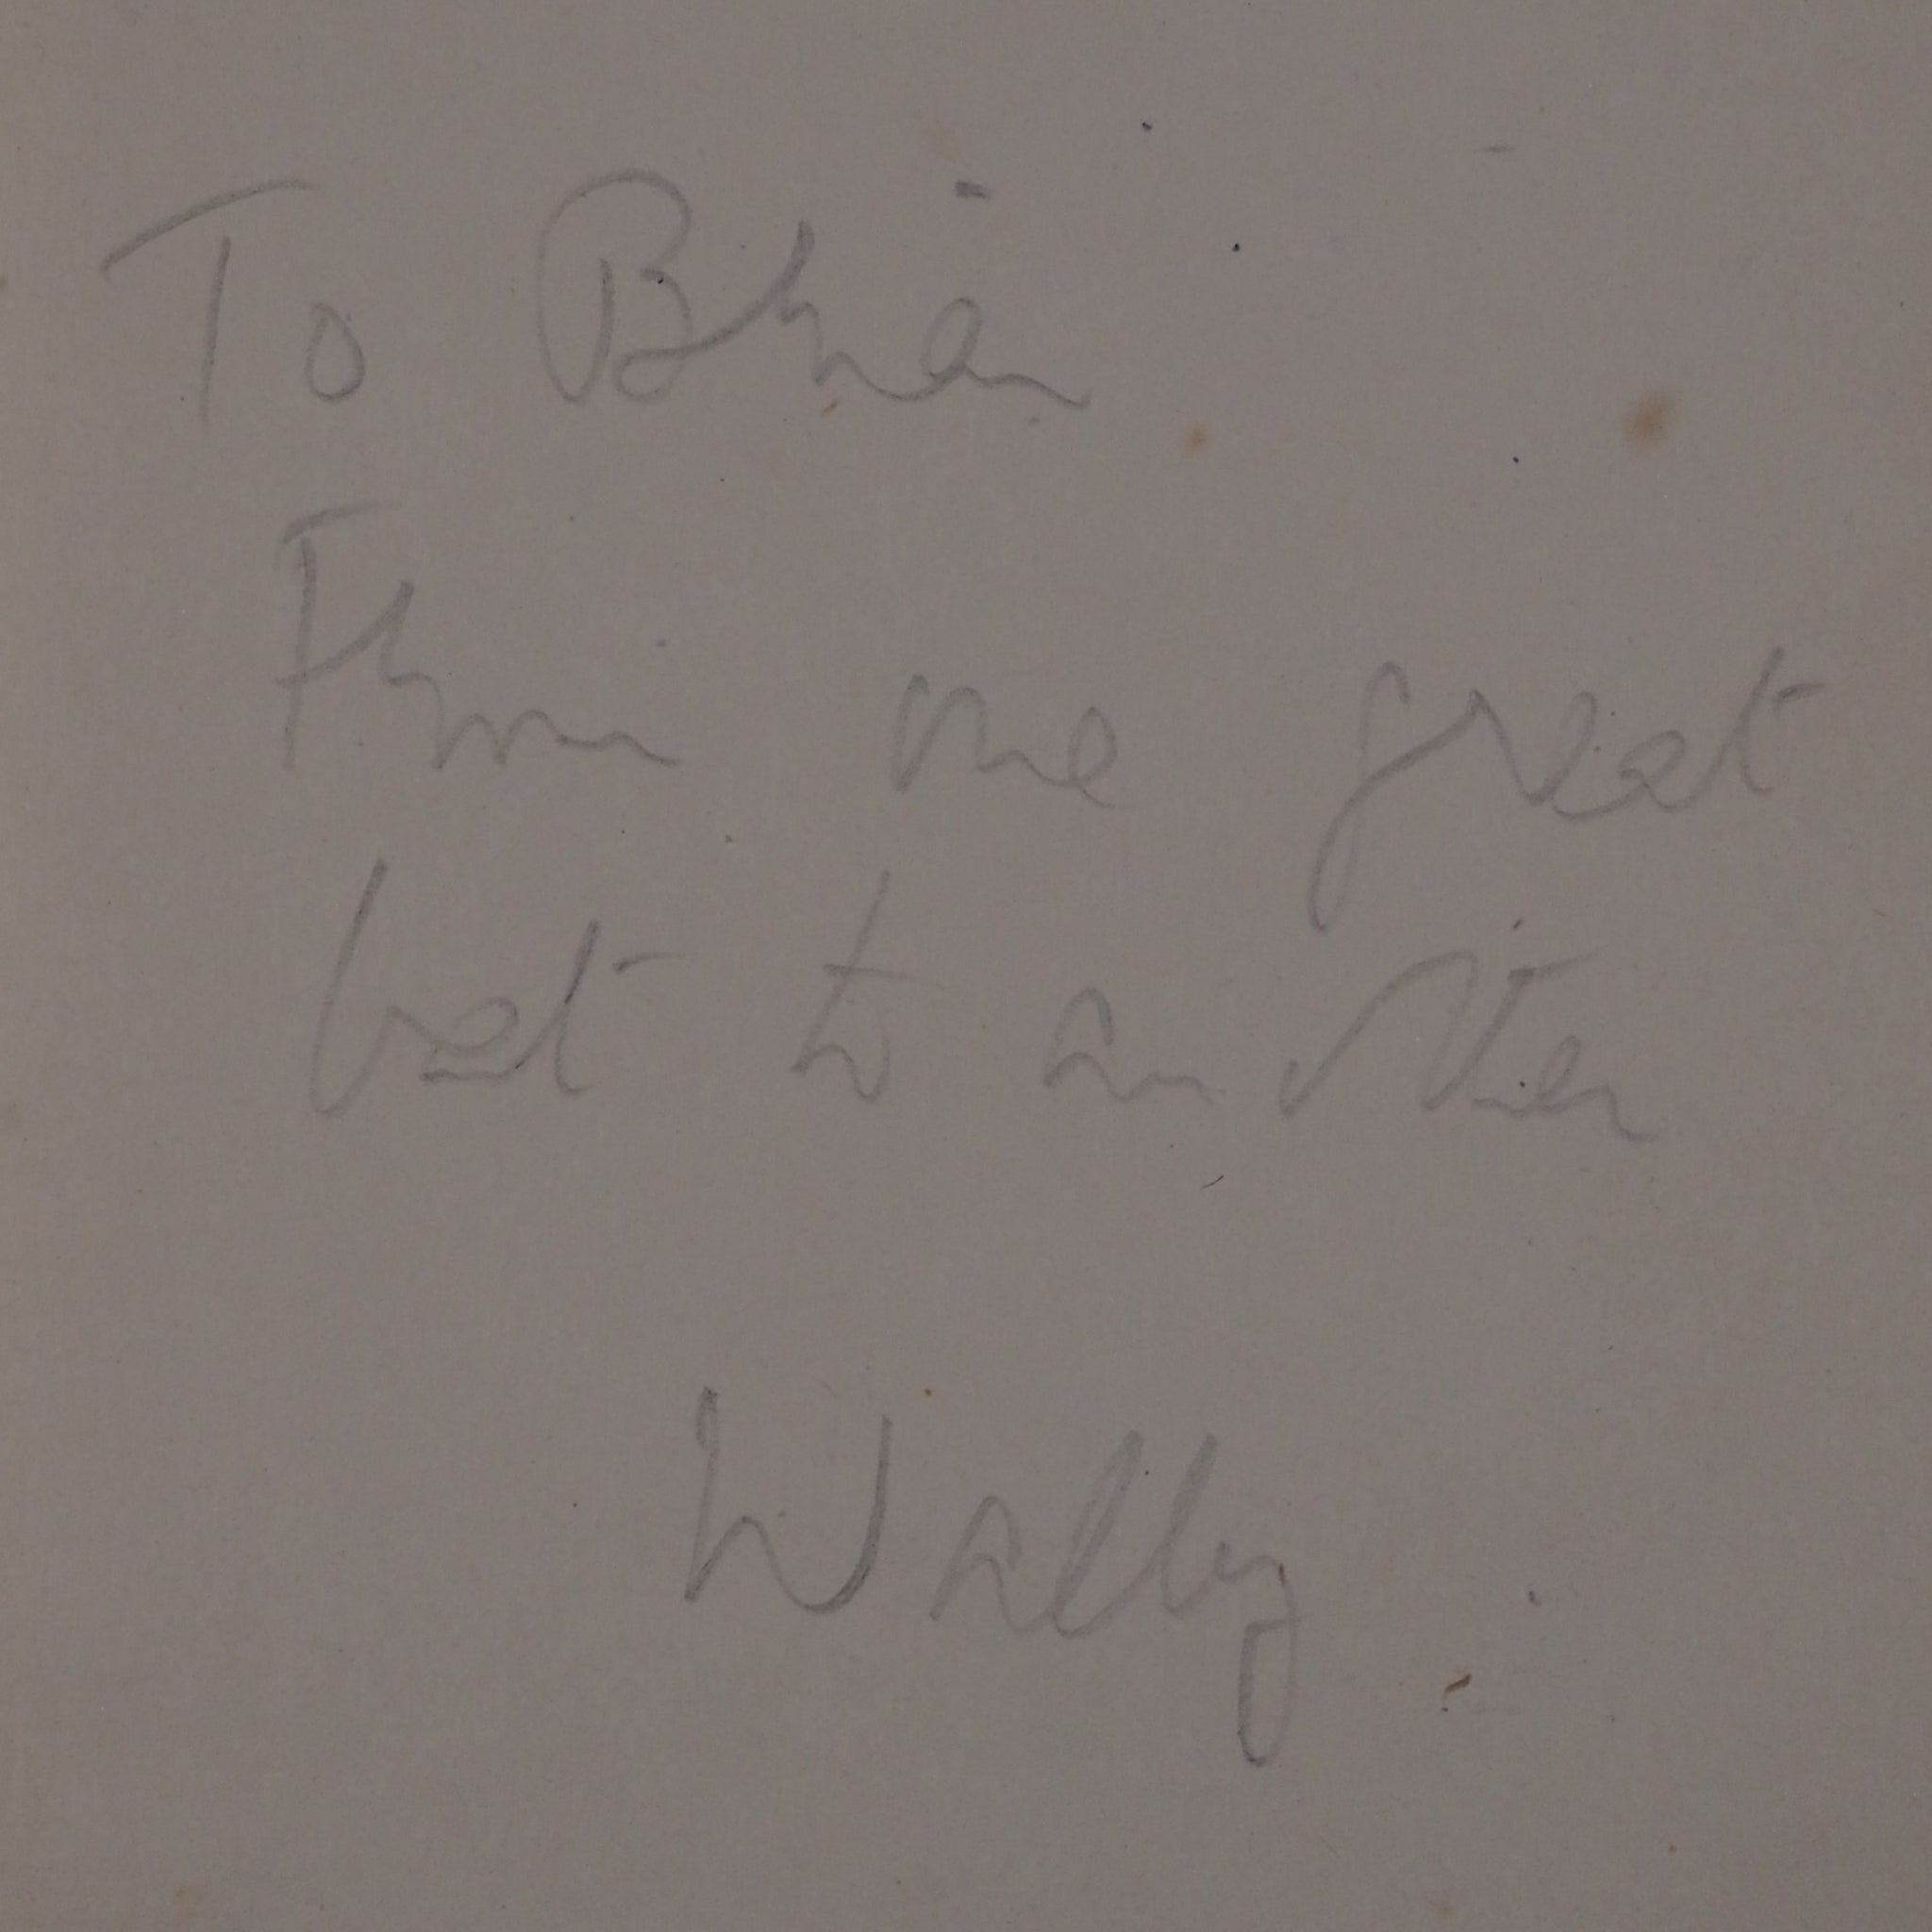 To Brian
From one great
bat to another
Wally